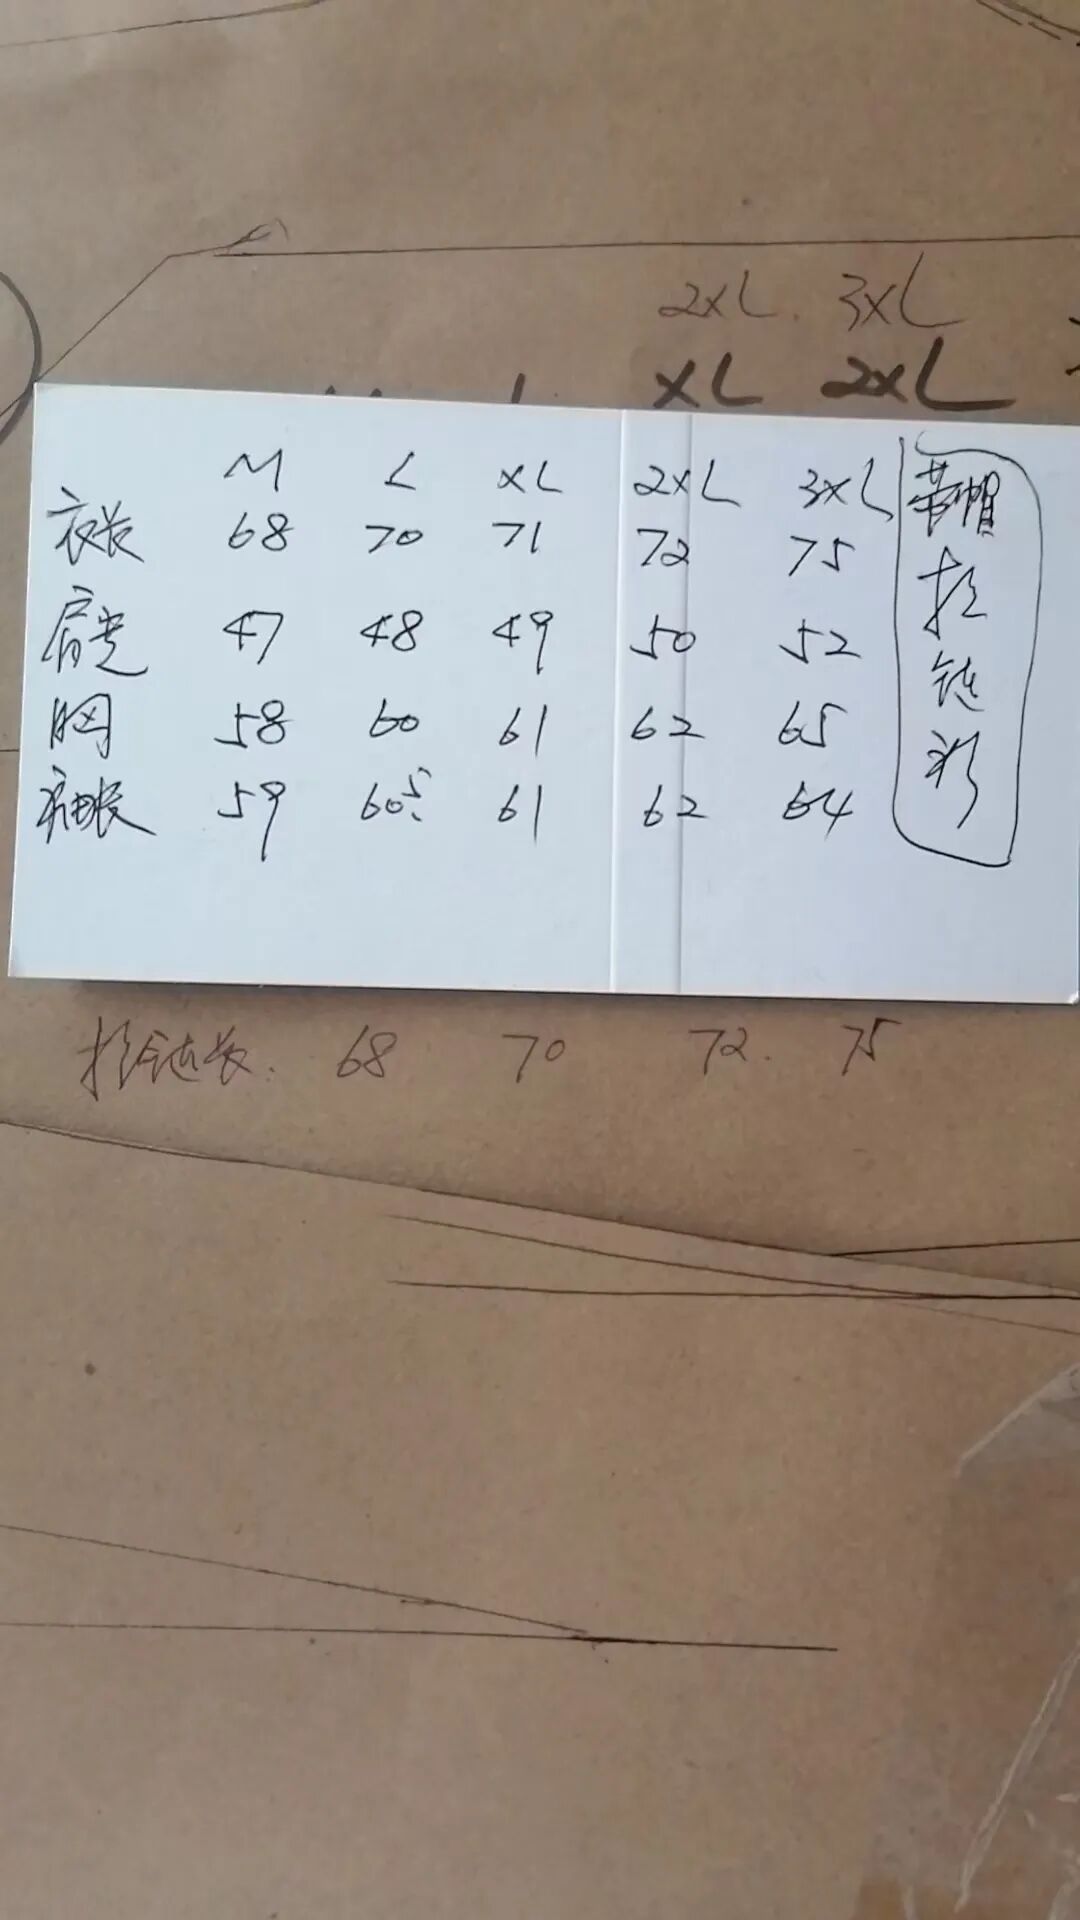 2XL. 3XL
XL 2XL
M L XL 2XL 3XL
衣长 68 70 71 72 75
肩宽 47 48 49 50 52
胸 58 60 61 62 65
袖长 59 60.5 61 62 64
带帽
拉
链
衫
拉链长. 68 70 72. 75